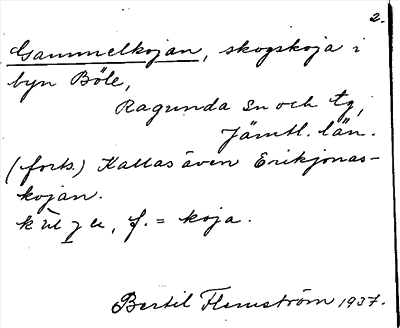 2.
Gammelkojan, skogskoja i
byn Böle,
Ragunda sn och tg,
Jämtl. län.
(forts.) Kallas även Erikjonas-
kojan.
f. = koja.
Bertil Flemström 1937.